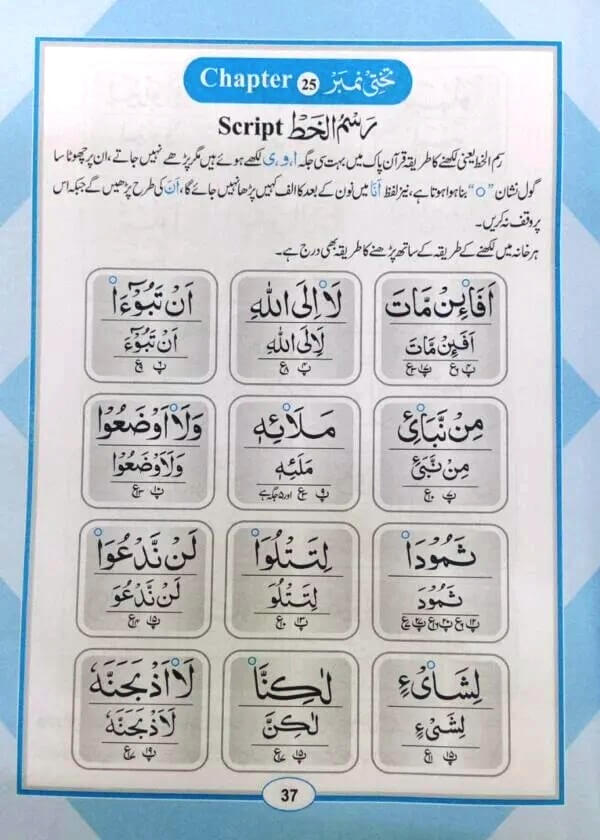 Chapter 25 تختی نمبر
Script رَسْمُ الْخَط
رسم الخط یعنی لکھنے کا طریقہ قرآن پاک میں بہت سی جگہ ا، و، ی لکھے ہوئے ہیں مگر پڑھے نہیں جاتے، ان پر چھوٹا سا
گول نشان "o" بنا ہوا ہوتا ہے، نیز لفظ اَنَا میں نون کے بعد کا الف کہیں پڑھا نہیں جائے گا، اَنَ کی طرح پڑھیں گے جبکہ اس
پر وقف نہ کریں۔
ہر خانہ میں لکھنے کے طریقہ کے ساتھ پڑھنے کا طریقہ بھی درج ہے۔
اَفَا۠ئِنْ مَّاتَ لَا۠اِلَى اللّٰهِ اَنْ تَبُوْٓءَا۠
اَفَئِنْ مَّاتَ لَاِلَى اللّٰهِ اَنْ تَبُوْٓءَ
مِنْ نَّبَا۠ئِ مَلَا۠ئِهٖ وَلَا۠اَوْضَعُوْا
مِنْ نَّبَئِ مَلَئِهٖ وَلَاَوْضَعُوْا
اور ۵ جگہ ہے
ثَمُوْدَا۠ لِتَتْلُوَا۠ لَنْ نَّدْعُوَا۠
ثَمُوْدَ لِتَتْلُوَ لَنْ نَّدْعُوَ
لِشَا۠یْءٍ لٰكِنَّا۠ لَا۠اَذْبَحَنَّهٗ
لِشَیْءٍ لٰكِنَّ لَاَذْبَحَنَّهٗ
37